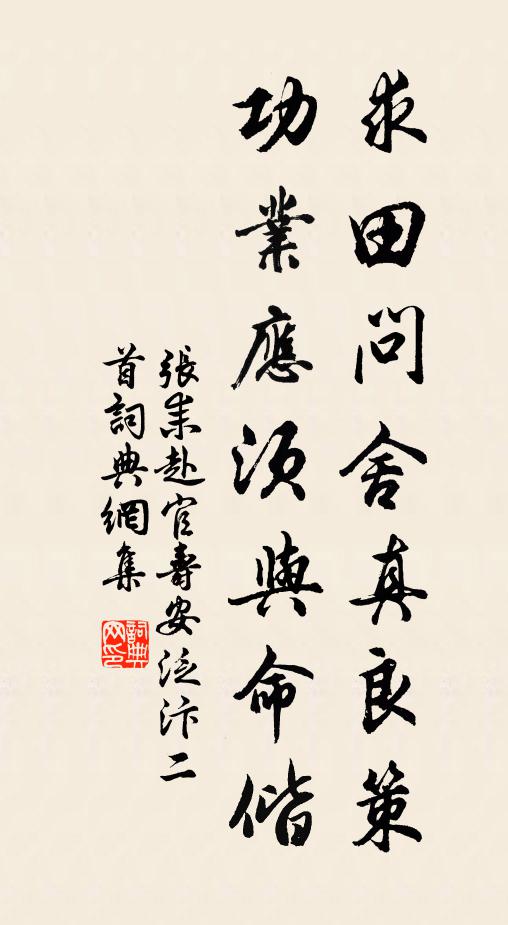 求田問舍真良策
功業應須與命偕
張耒赴官壽安泛汴二
首詞典網集
詞典網印